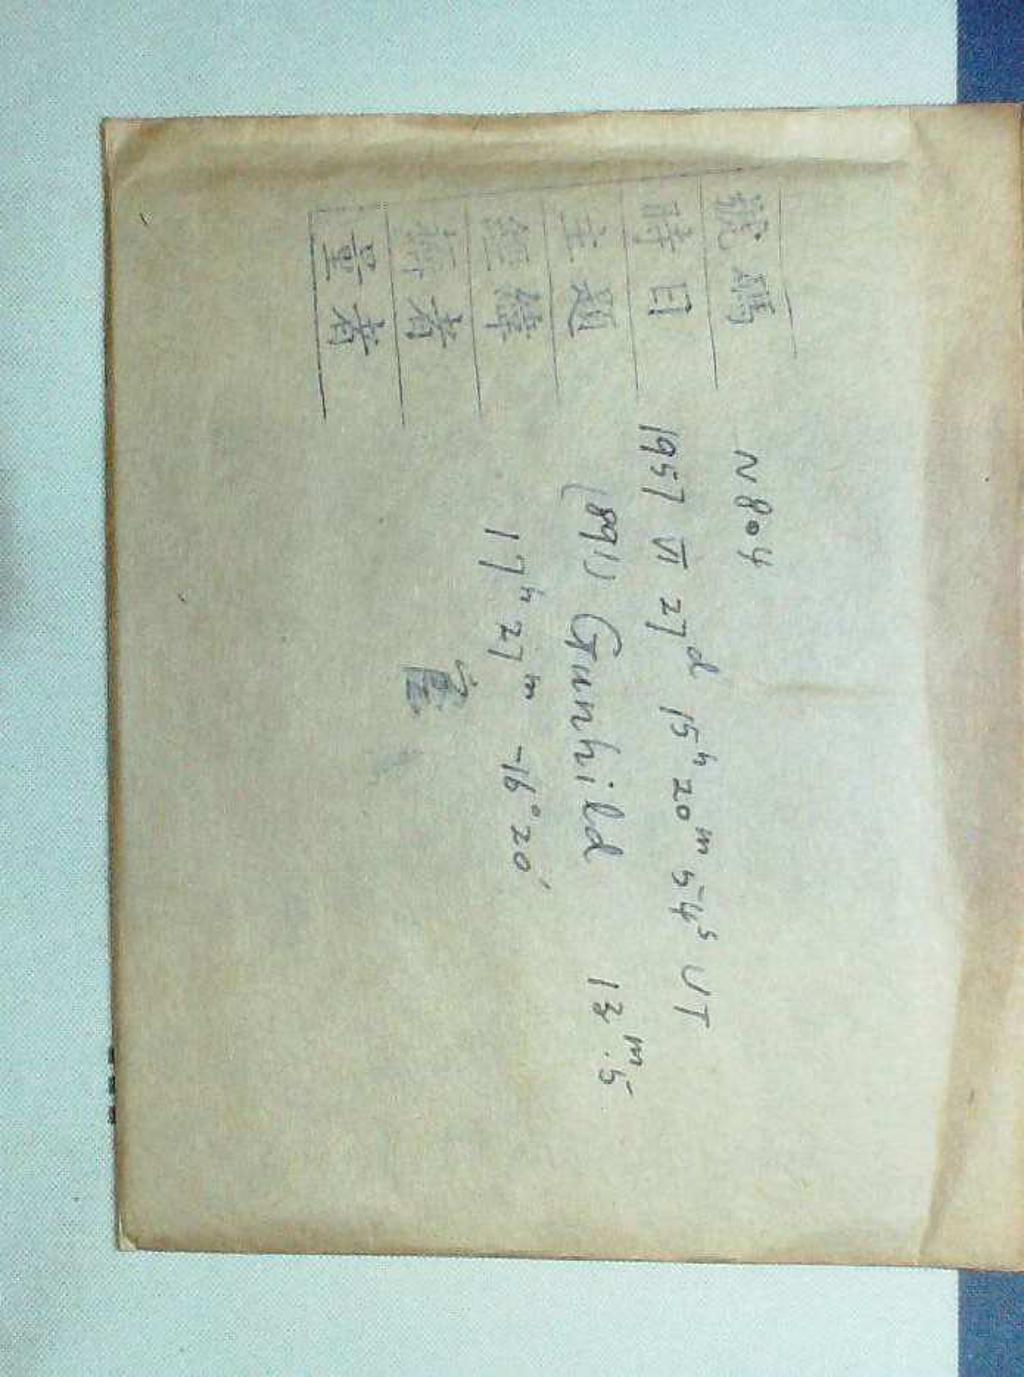 號碼 N804
時日 1957 VI 27ᵈ 15ʰ 20ᵐ 54ˢ UT
主題 (891) Gunhild 13ᵐ.5
經緯 17ʰ 27ᵐ -16° 20′
衛者
量者